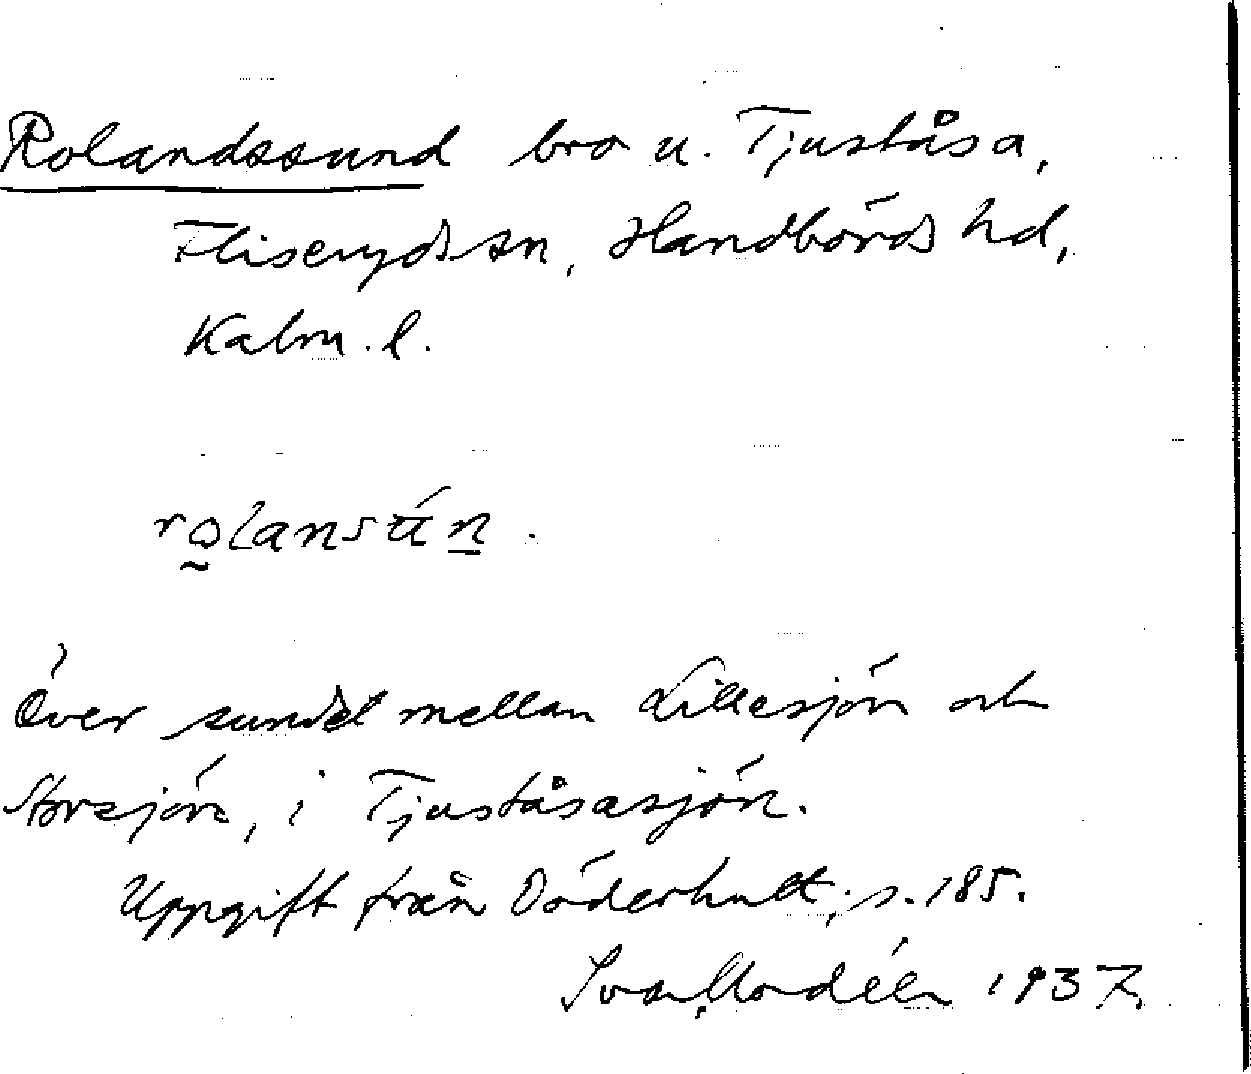 Rolandssund bro u. Tjuståsa,
Fliseryds sn, Handbörds hd,
Kalm. l.
rolansún.
Över sundet mellan Lillesjön och
Storsjön, i Tjuståsasjön.
Uppgift från Döderhult, s. 185.
Ivar Modéer 1937.